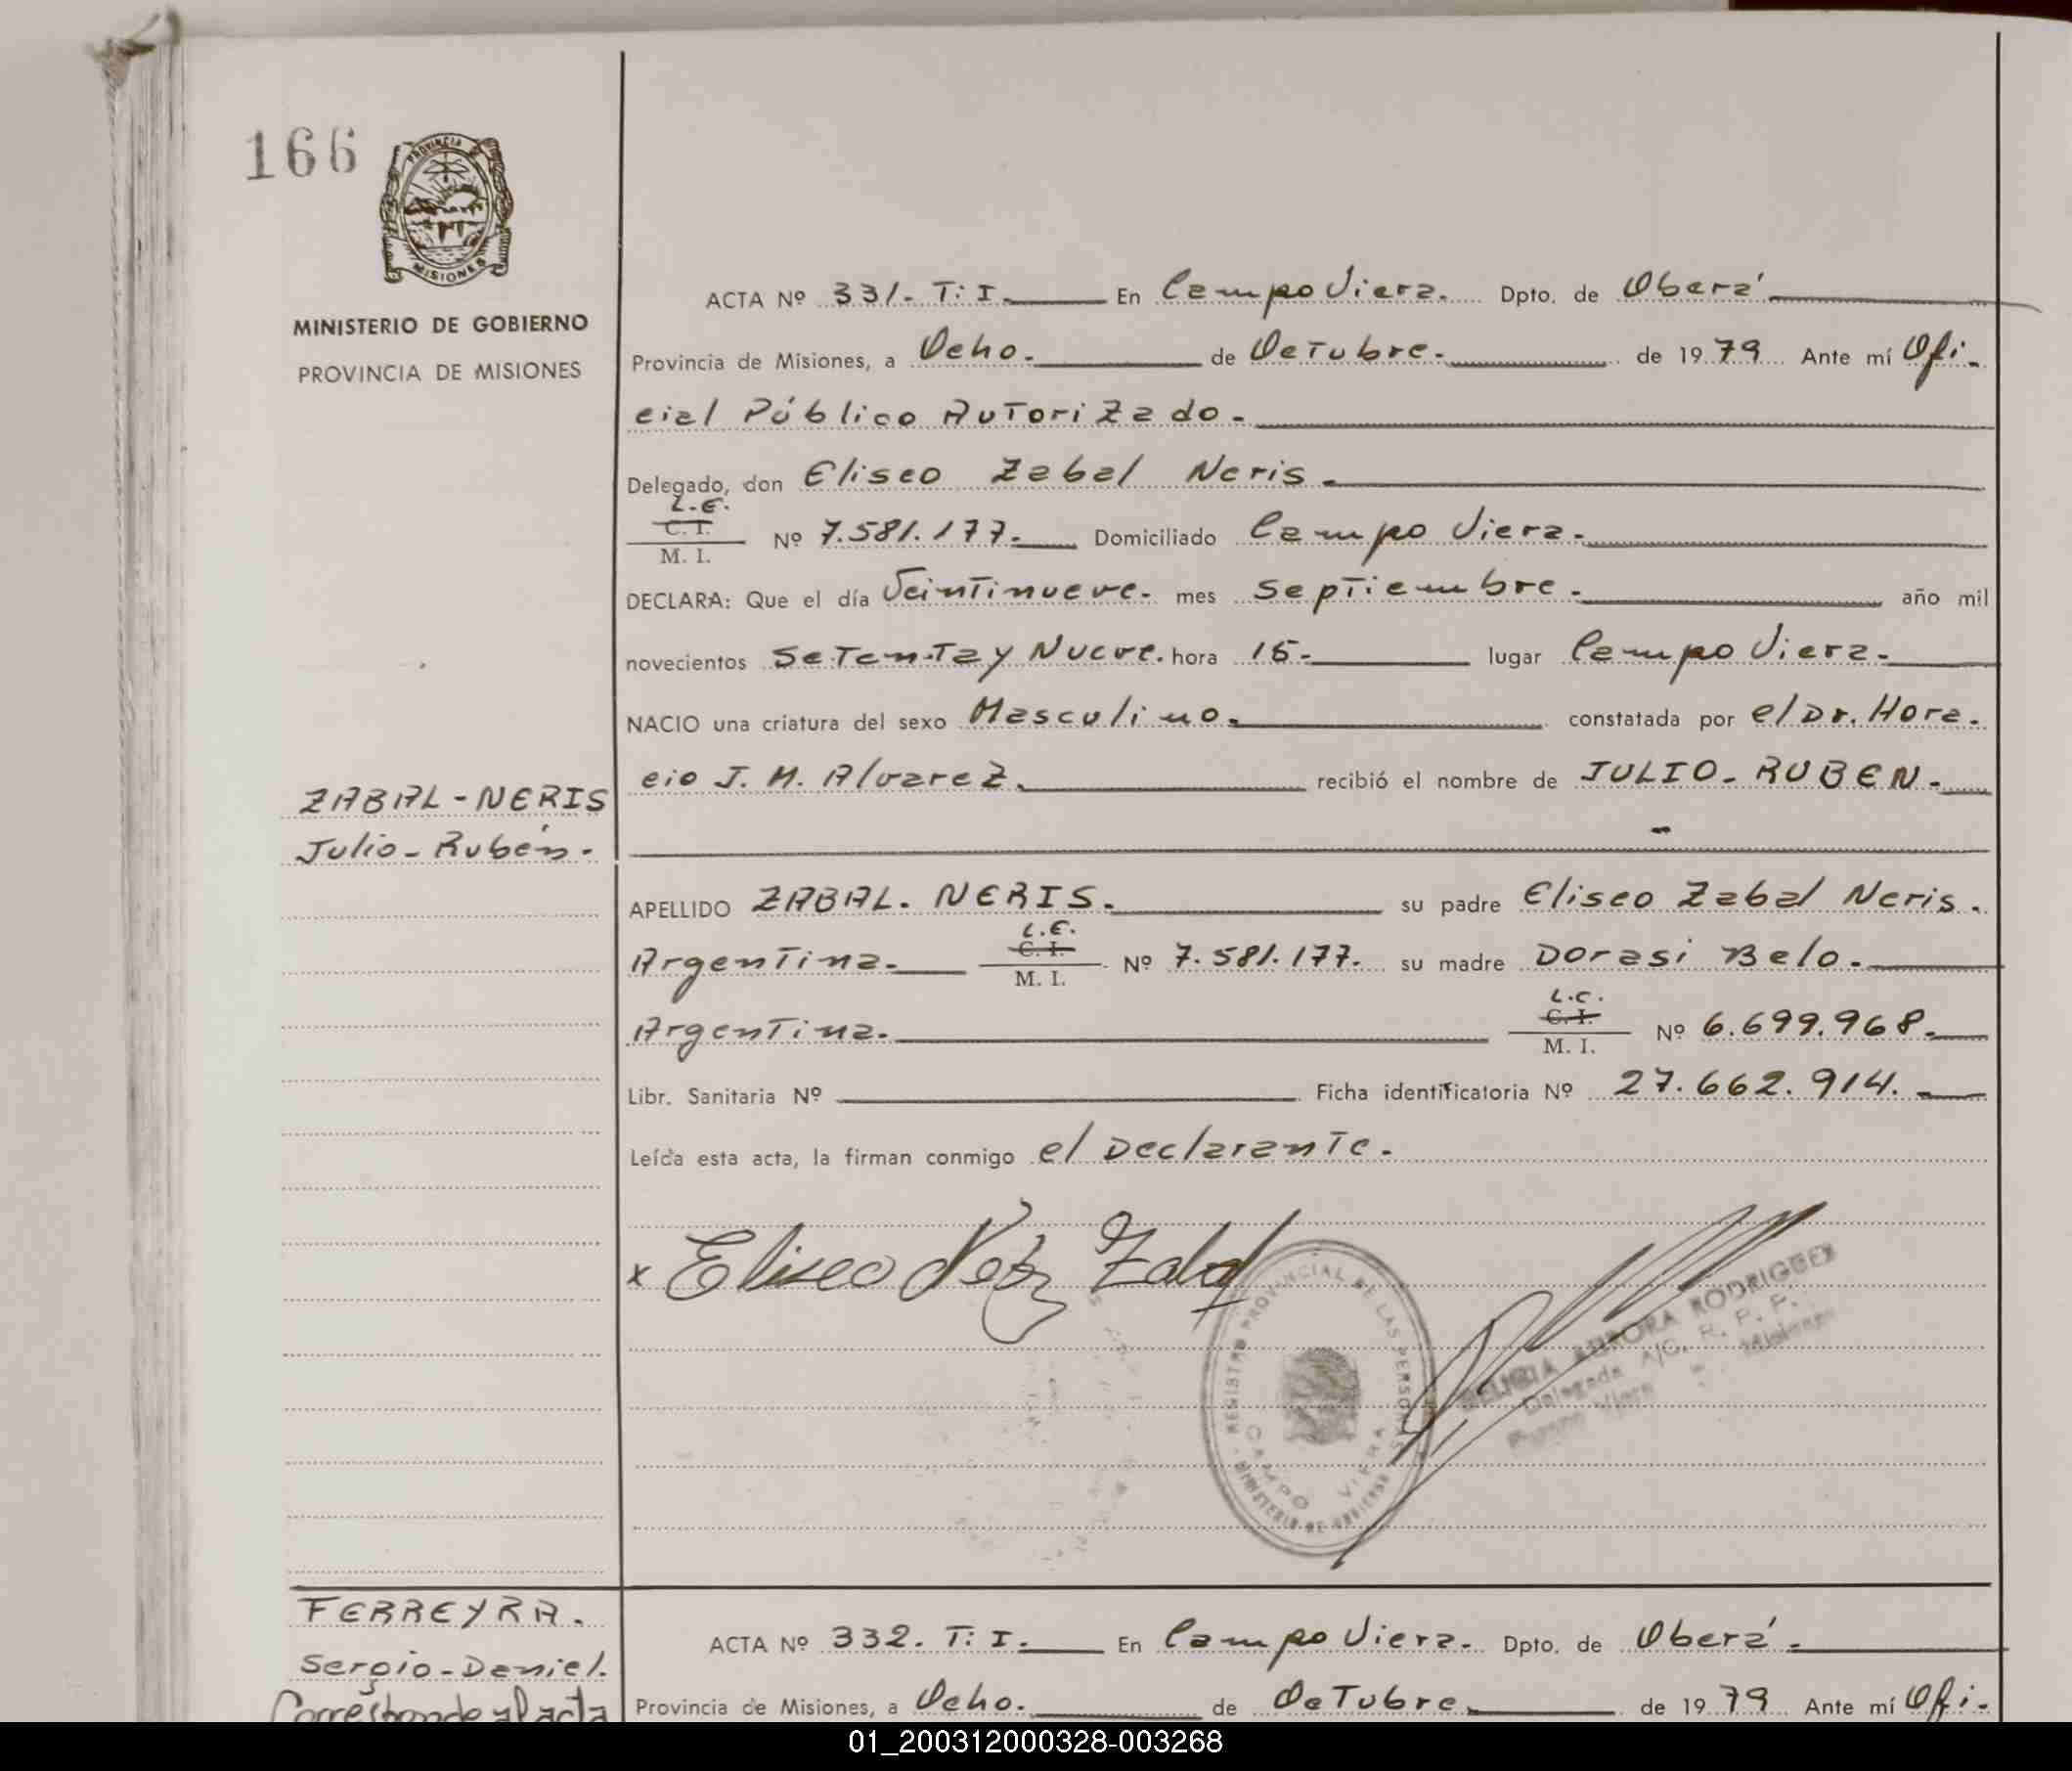 166
PROVINCIA DE
MISIONES
MINISTERIO DE GOBIERNO
PROVINCIA DE MISIONES
ACTA Nº 331. T: I. En Campo Viera. Dpto. de Oberá
Provincia de Misiones, a Ocho. de Octubre. de 1979 Ante mí Ofi-
cial Público Autorizado.
Delegado, don Eliseo Zabal Neris.
L.E.
C. I.
M. I. Nº 7.581.177. Domiciliado Campo Viera.
DECLARA: Que el día Veintinueve. mes Septiembre. año mil
novecientos Setenta y Nueve. hora 15. lugar Campo Viera.
NACIO una criatura del sexo Masculino. constatada por el Dr. Hora-
cio J. M. Alvarez. recibió el nombre de JULIO-RUBEN.
ZABAL-NERIS
Julio-Rubén.
APELLIDO ZABAL. NERIS. su padre Eliseo Zabal Neris.
L.E.
C. I.
Argentina. M. I. Nº 7.581.177. su madre Dorasi Belo.
L.C.
C. I.
Argentina. M. I. Nº 6.699.968.
Libr. Sanitaria Nº Ficha identificatoria Nº 27.662.914.
Leída esta acta, la firman conmigo el Declarante.
x Eliseo Zabal
REGISTRO PROVINCIAL DE LAS PERSONAS
MINISTERIO DE GOBIERNO
CAMPO VIERA
DELICIA AURORA RODRIGUEZ
Delegada A/C. R. P. P.
Misiones
FERREYRA.
Sergio-Daniel.
Corresponde al acta
ACTA Nº 332. T: I. En Campo Viera. Dpto. de Oberá.
Provincia de Misiones, a Ocho. de Octubre. de 1979 Ante mí Ofi-
01_200312000328-003268